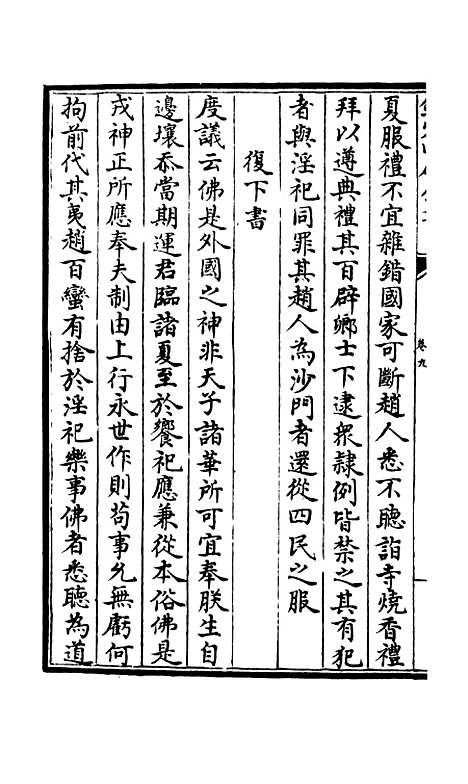 夏服禮不宜雜錯國家可斷趙人悉不聽詣寺燒香禮
拜以遵典禮其百辟鄉士下逮衆隷例皆禁之其有犯
者與淫祀同罪其趙人為沙門者還從四民之服
復下書
度議云佛是外國之神非天子諸華所可宜奉朕生自
邊壤忝當期運君臨諸夏至於饗祀應兼從本俗佛是
戎神正所應奉夫制由上行永世作則苟事允無虧何
拘前代其夷趙百蠻有捨於淫祀樂事佛者悉聽為道
卷九